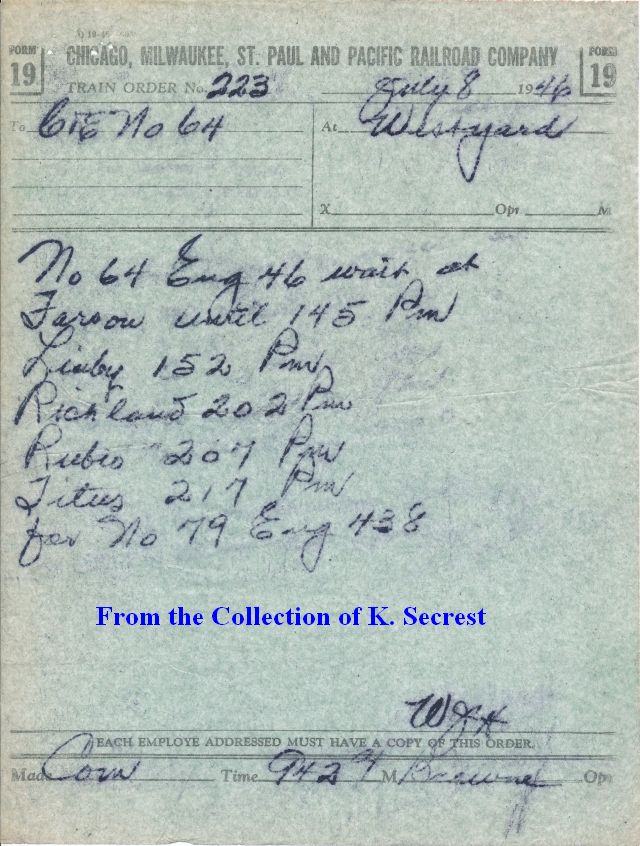 FORM 19
CHICAGO, MILWAUKEE, ST. PAUL AND PACIFIC RAILROAD COMPANY
FORM 19
TRAIN ORDER No. 223 July 8 1946
To C&E No 64 At Westyard
X Opr M
No 64 Eng 46 wait at
Farson until 145 Pm
Linby 152 Pm
Richland 202 Pm
Rubio 207 Pm
Titus 217 Pm
for No 79 Eng 438
From the Collection of K. Secrest
WJH
EACH EMPLOYE ADDRESSED MUST HAVE A COPY OF THIS ORDER.
Made Com Time 942 A M Browne Opr